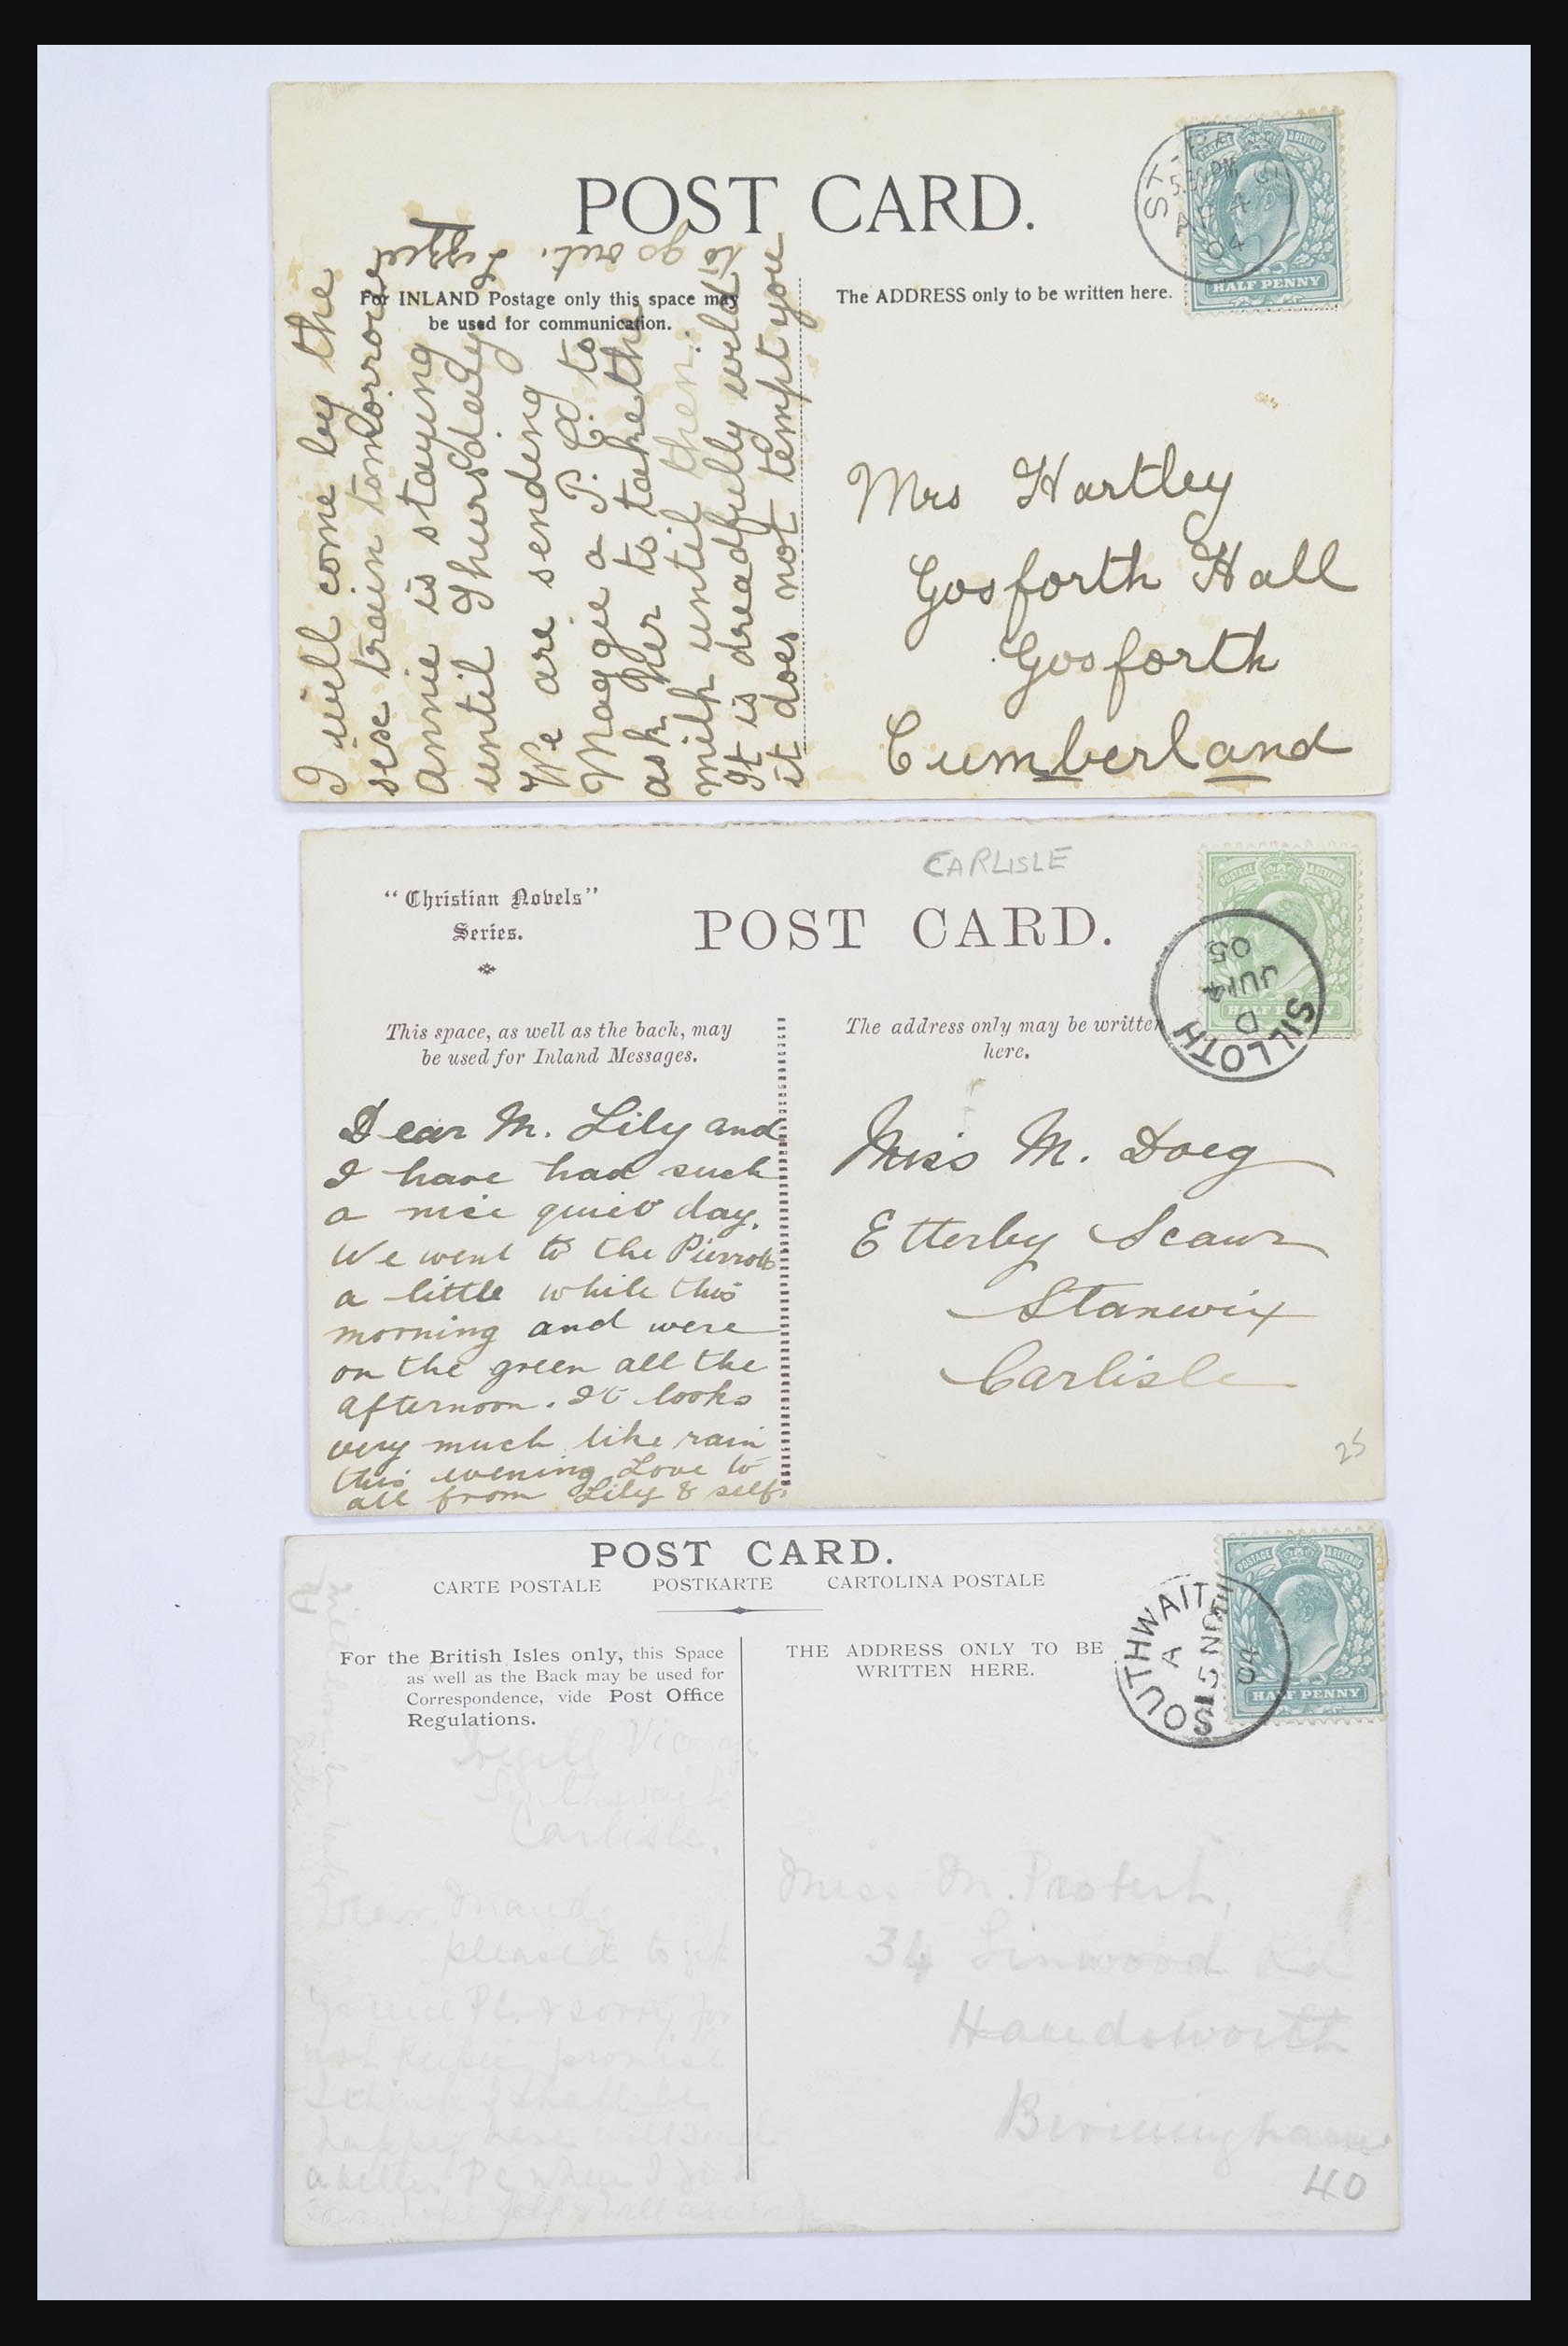 POST CARD.
For INLAND Postage only this space may
be used for communication.
The ADDRESS only to be written here.
POSTAGE & REVENUE
HALF PENNY
ST
5.30PM
4
04
I will come by the
six train tomorrow
Annie is staying
until Thursday
We are sending
Maggie a P.C. to
ask her to take the
milk until then.
It is dreadfully wild
it does not tempt you
to go out.
Mrs Hartley
Gosforth Hall
Gosforth
Cumberland
CARLISLE
"Christian Novels"
Series.
POST CARD.
POSTAGE & REVENUE
HALF PENNY
SILLOTH
D
JU 14
05
This space, as well as the back, may
be used for Inland Messages.
The address only may be written
here.
Dear M. Lily and
I have had such
a nice quiet day.
We went to the Pierrots
a little while this
morning and were
on the green all the
afternoon. It looks
very much like rain
this evening Love to
all from Lily & self.
Miss M. Doeg
Etterby Scaur
Stanwix
Carlisle
25
POST CARD.
CARTE POSTALE POSTKARTE CARTOLINA POSTALE
POSTAGE & REVENUE
HALF PENNY
SOUTHWAITE
A
04
For the British Isles only, this Space
as well as the Back may be used for
Correspondence, vide Post Office
Regulations.
THE ADDRESS ONLY TO BE
WRITTEN HERE.
Vicarage
Southwaite
Carlisle.
Dear Maud.
pleased to get
your P.C. & sorry for
not keeping promise
I think I shall be
happy here will send
a better P.C. when I go
Miss M. Probert,
34 Linwood Rd
Handsworth
Birmingham
40